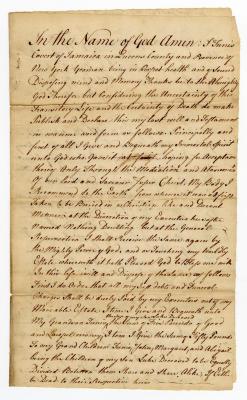 In the Name of God Amen: I Tunis
Covert of Jamaica in Queens County and Province of
New York Yeoman being in perfect health and of sound
Disposing mind and Memory Thanks be to the Almighty
God Therefor but Considering the Uncertainty of this
Transitory Life and the Certainty of Death do make
Publish and Declare this my last will and Testament
in manner and form as follows. Principally and
first of all I Give and Bequeath my Immortal Spirit
unto God who gave it hoping for Acceptance
thereof Only Through the Mediation and Atonement
of our Lord and Saviour Jesus Christ. My Body I
Recommend to the Earth from whence it was
Taken to be Buried in a Christian like and Decent
Manner at the Direction of my Executors hereafter
named Nothing Doubting but at the General
Resurrection I shall Receive the Same again by
the Mighty Power of God, and as Touching my worldly
Estate wherewith it hath Pleased God to Bless me with
In this life I will and Dispose of the Same as follows
First I do Order that all my Just debts and Funeral
Charges Shall be duly Paid by my Executors out of my
Moveable Estate. Item I Give and Bequeath unto
My Grandson Tunis the Sum of Five Pounds of Good
and Lawful money. Item I Give the Sum of Fifty Pounds
To my Grand Children Tunis, John, Margaret, and Abigail
being the Children of my Son Luke Deceased to be Equally
Divided Between them Share and Share Alike. If Either
be Dead to their Respective heirs